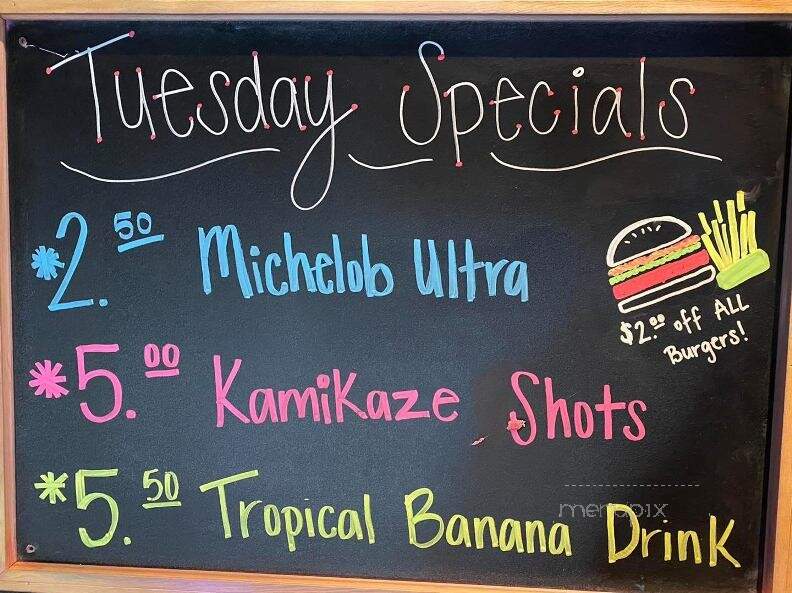 Tuesday Specials
*2.50 Michelob Ultra
$2.00 off ALL
Burgers!
*5.00 Kamikaze Shots
*5.50 Tropical Banana Drink
menupix